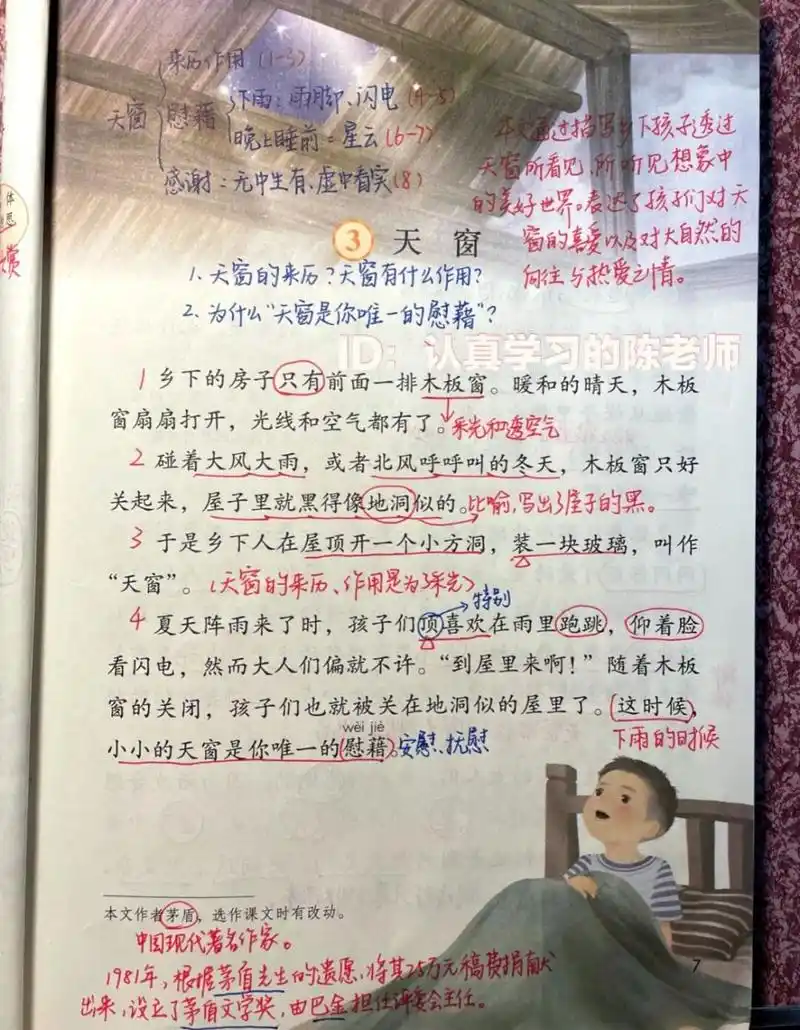 来历作用 (1-3)
天窗 慰藉 下雨：雨脚、闪电 (4-5)
晚上睡前：星云 (6-7)
感谢：无中生有、虚中看实 (8)
本文通过描写乡下孩子透过
天窗所看见、所听见想象中
的美好世界。表达了孩子们对天
窗的喜爱以及对大自然的
向往与热爱之情。
3 天窗
1. 天窗的来历？天窗有什么作用？
2. 为什么“天窗是你唯一的慰藉”？
ID：认真学习的陈老师
1 乡下的房子只有前面一排木板窗。暖和的晴天，木板
窗扇扇打开，光线和空气都有了。采光和透空气
2 碰着大风大雨，或者北风呼呼叫的冬天，木板窗只好
关起来，屋子里就黑得像地洞似的。比喻，写出了屋子的黑。
3 于是乡下人在屋顶开一个小方洞，装一块玻璃，叫作
“天窗”。(天窗的来历、作用是为了采光)
特别
4 夏天阵雨来了时，孩子们顶喜欢在雨里跑跳，仰着脸
看闪电，然而大人们偏就不许。“到屋里来啊！”随着木板
窗的关闭，孩子们也就被关在地洞似的屋里了。这时候，
下雨的时候
wèi jiè
小小的天窗是你唯一的慰藉。安慰、抚慰
体
赏
本文作者茅盾，选作课文时有改动。
中国现代著名作家。
7
1981年，根据茅盾先生的遗愿，将其25万元稿费捐献
出来，设立了茅盾文学奖，由巴金担任评委会主任。